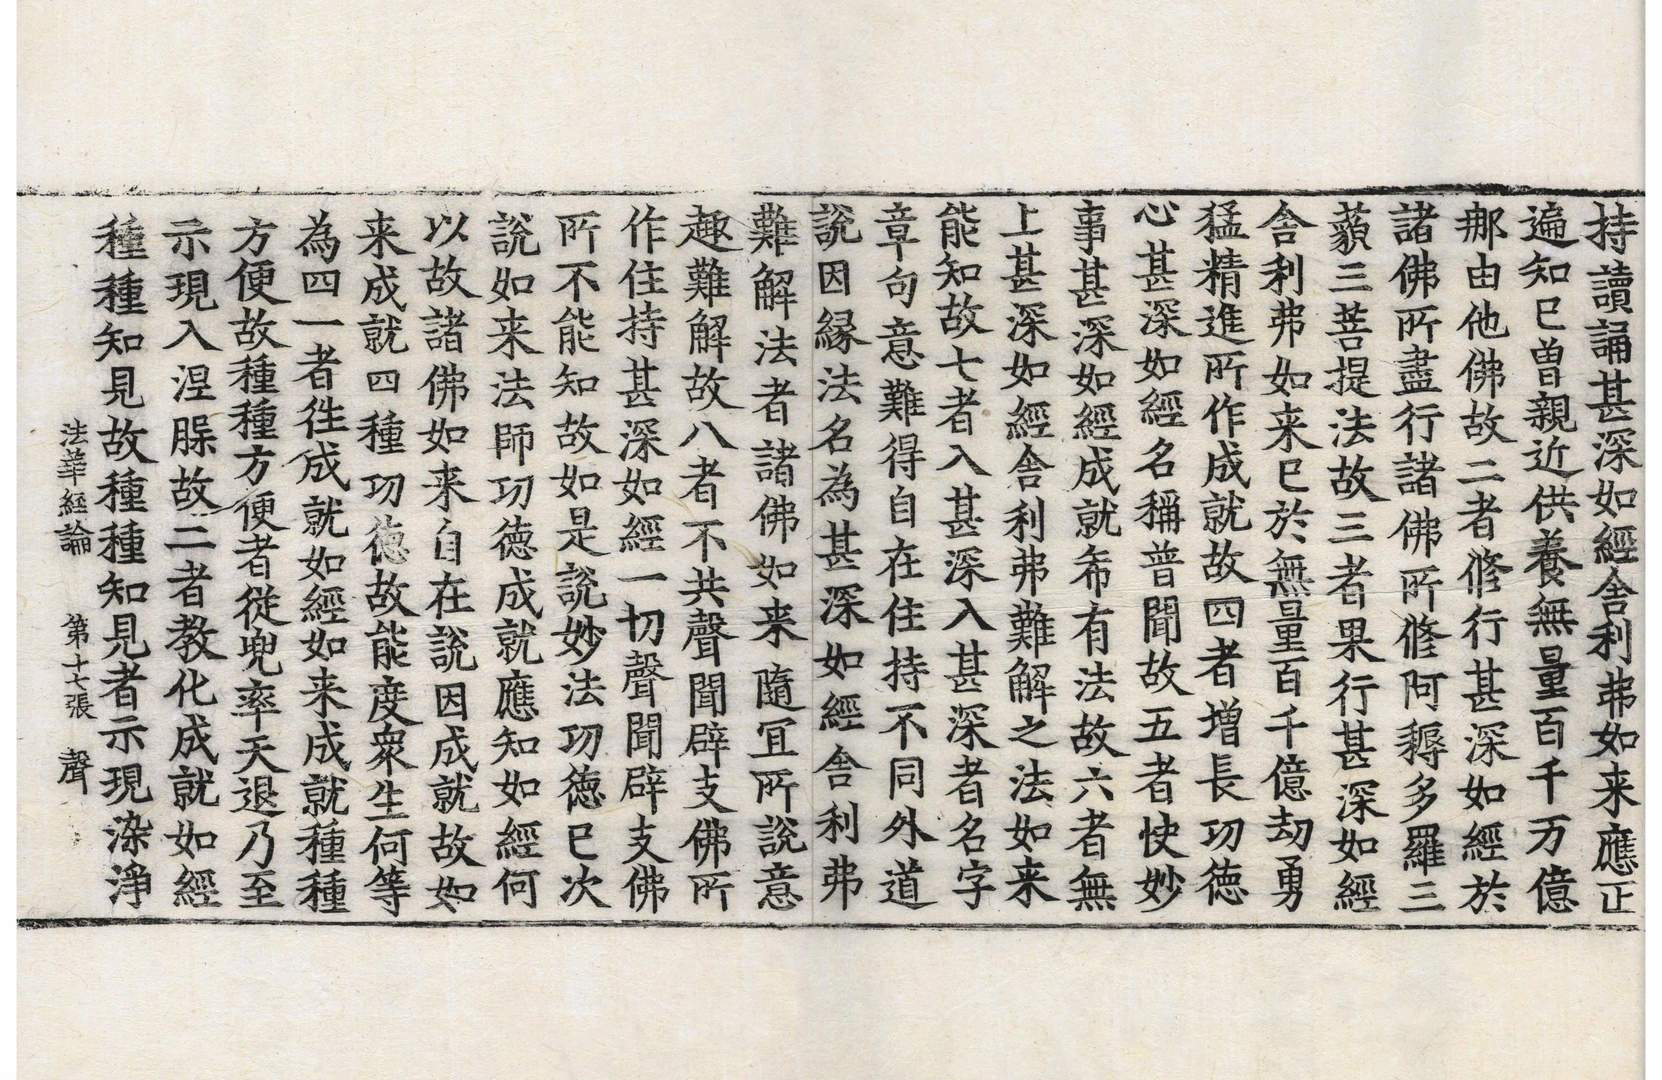 持讀誦甚深如經舍利弗如来應正
遍知已曾親近供養無量百千万億
那由他佛故二者修行甚深如經於
諸佛所盡行諸佛所修阿耨多羅三
藐三菩提法故三者果行甚深如經
舍利弗如来已於無量百千億劫勇
猛精進所作成就故四者增長功德
心甚深如經名稱普聞故五者快妙
事甚深如經成就希有法故六者無
上甚深如經舍利弗難解之法如来
能知故七者入甚深入甚深者名字
章句意難得自在住持不同外道
說因緣法名為甚深如經舍利弗
難解法者諸佛如来隨冝所說意
趣難解故八者不共聲聞辟支佛所
作住持甚深如經一切聲聞辟支佛
所不能知故如是說妙法功德已次
說如来法師功德成就應知如經何
以故諸佛如来自在說因成就故如
来成就四種功德故能度衆生何等
為四一者徃成就如經如来成就種種
方便故種種方便者從兜率天退乃至
示現入涅槃故二者教化成就如經
種種知見故種種知見者示現染淨
法華經論 第十七張 聲